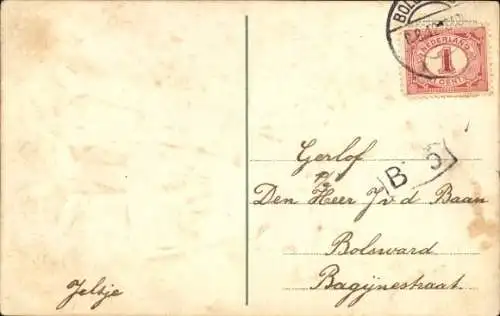 BOLS
NEDERLAND
1
CENT
Gerlof
B
p/a
Den Heer J v d Baan
Bolsward
Bagijnestraat
Jeltje